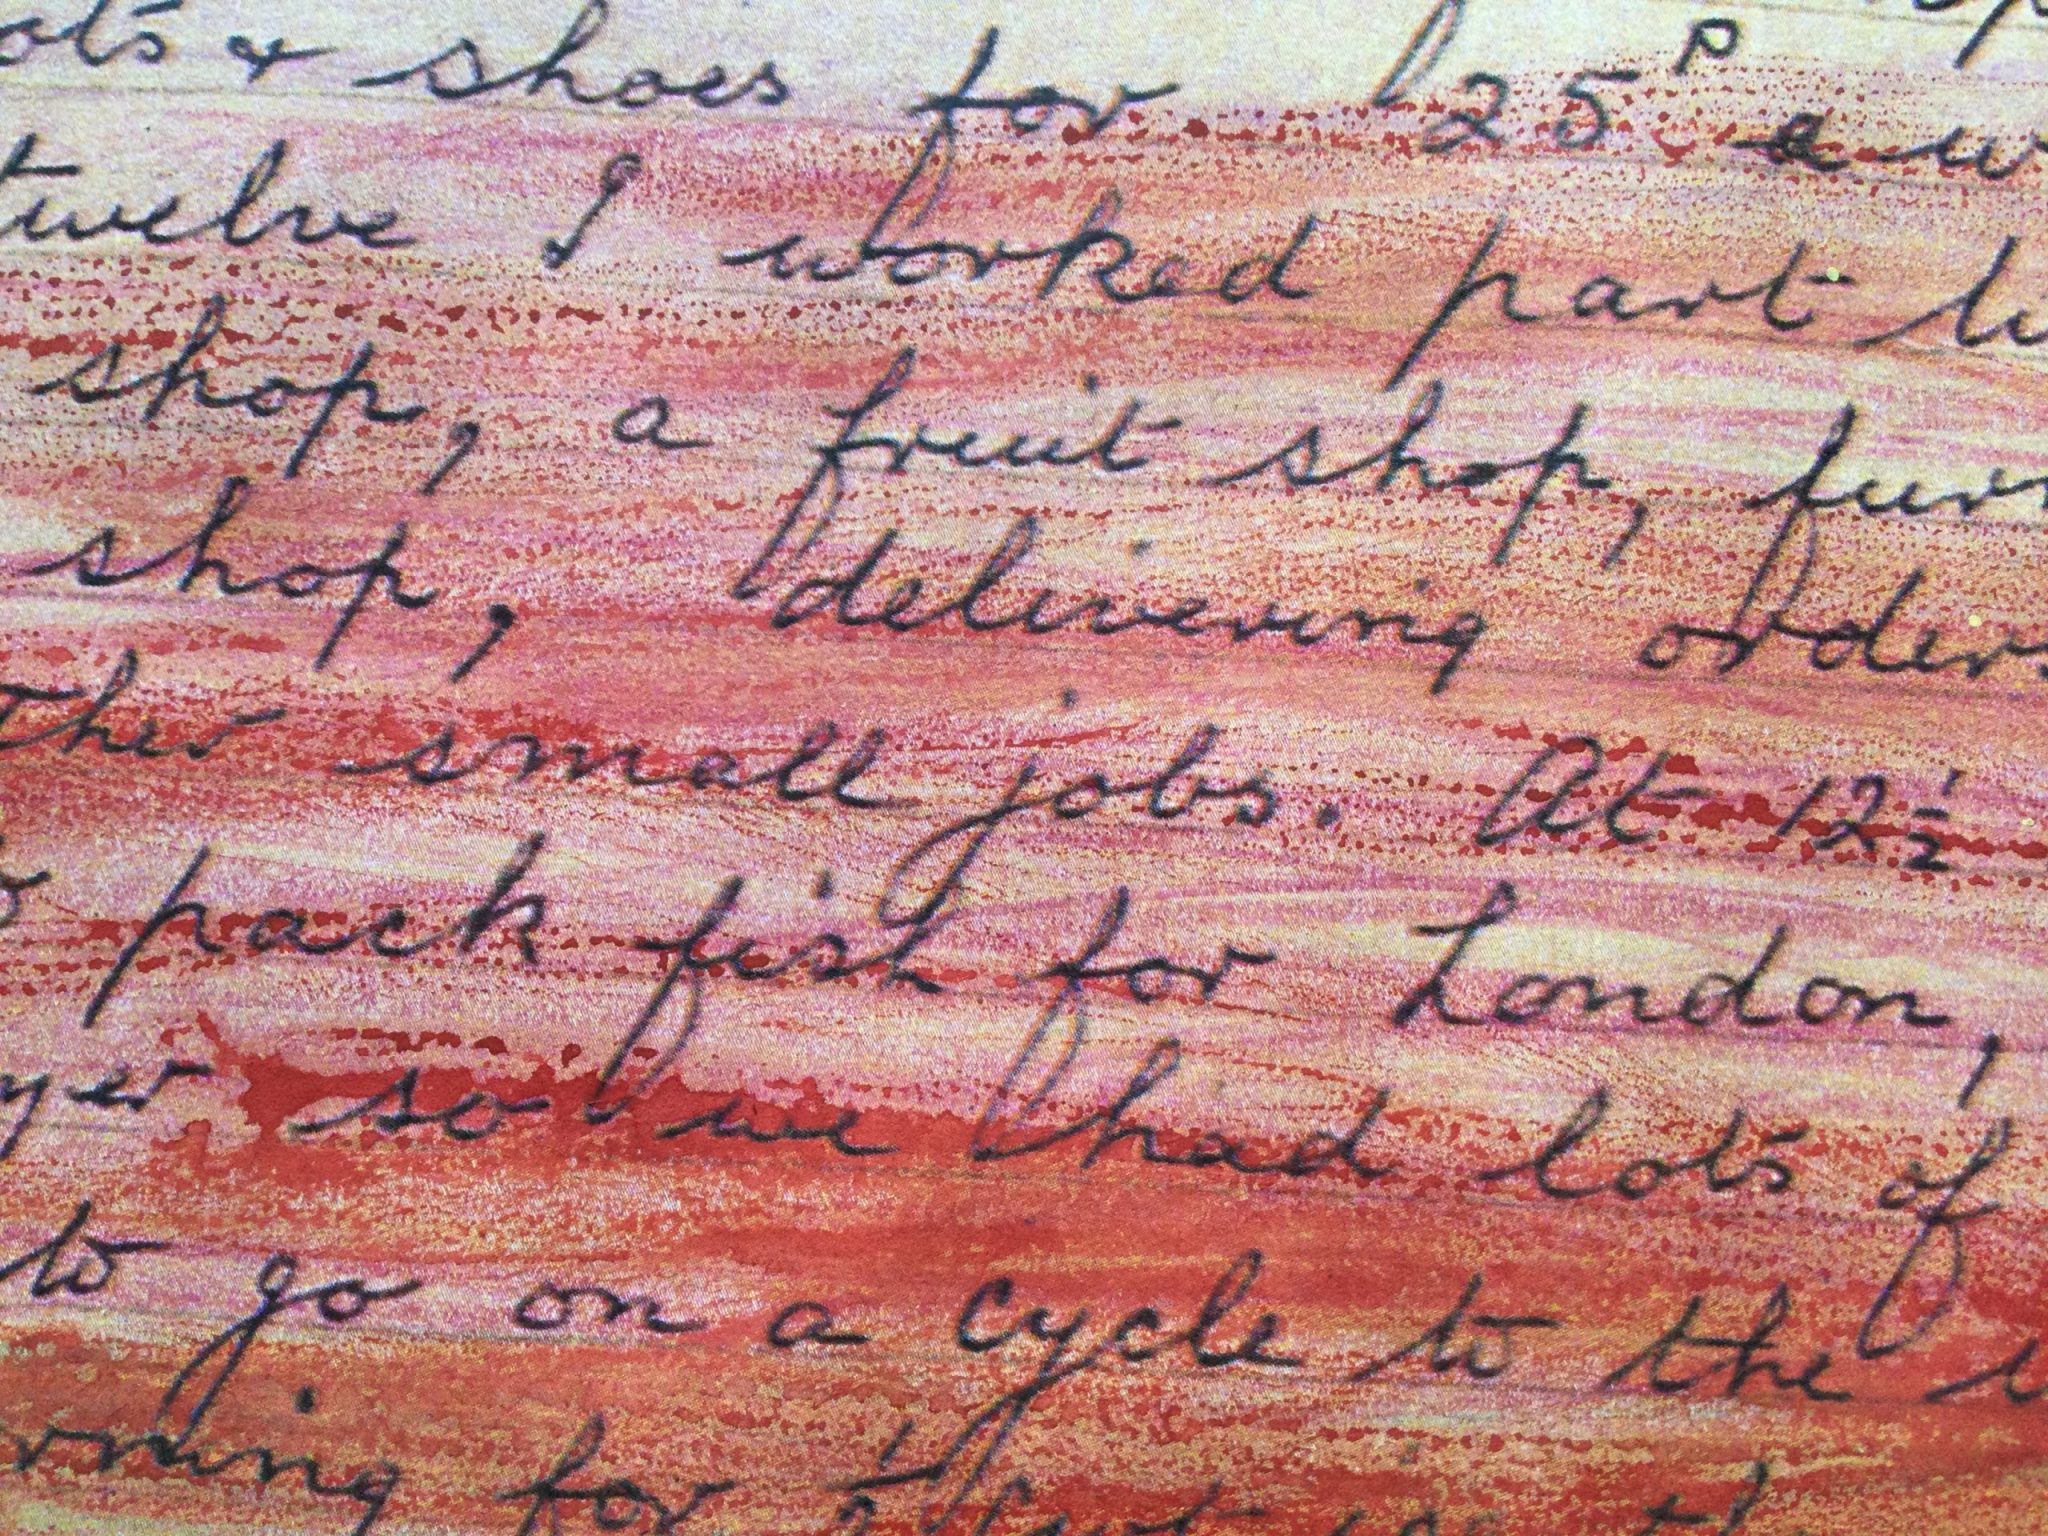 ots & shoes for 25p a w
twelve I worked part ti
shop, a fruit shop, furn
shop, delivering orders
ther small jobs. At 12½
pack fish for London
yer so we had lots of
to go on a cycle to the
rning for